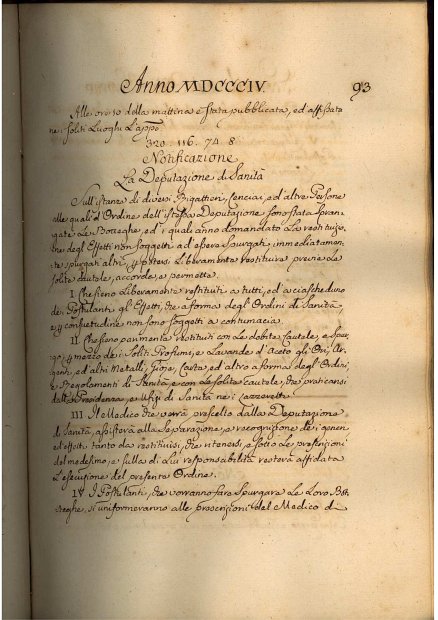 Anno MDCCCIV. 93
Alle ore 10 della mattina è stata pubblicata, ed affissata
ne i soliti Luoghi L'appo.
320. 116. 74. 8
Notificazione
La Deputazione di Sanità
Sull'istanze di diversi Rigattieri, Cenciai, ed altre Persone
alle quali d'Ordine dell'istessa Deputazione sono state spran-
gate Le Botteghe, ed i quali anno domandato La restituzio-
ne degl'Effetti non soggetti ad essere spurgati, immediatamen-
te spurgati altri, e potersi Liberamente restituire previe Le
solite Cautele, accorda e permette.
I Che sieno Liberamente restituiti a tutti, ed a ciascheduno
de i Postulanti gl'Effetti, che a forma degl'Ordini di Sanità,
e consuetudine non sono soggetti a contumacia.
II. Che sieno parimente restituiti con Le debite Cautele, e Spur-
go, mezzo de i soliti Profumi, e Lavande d'Aceto gli Ori, Ar-
genti, ed altri Metalli, Gioje, Carta ed altro a forma degl'Ordini,
e Regolamenti di Sanità e con Le solite Cautele, che praticansi
dalle Presidenze, e Ufizi di Sanità ne i Lazzeretti.
III Il Medico che verrà prescelto dalla Deputazione
di Sanità, assisterà alla Separazione, e recognizione de i generi
ed effetti tanto da restituirsi, che ritenersi, e sotto Le prescrizioni
del medesimo, e sulla di Lui responsabilità resterà affidata
L'esecuzione del presente Ordine.
IV I Postulanti, che vorranno fare Spurgare Le Loro Bot-
teghe, si uniformeranno alle prescrizioni del Medico di-